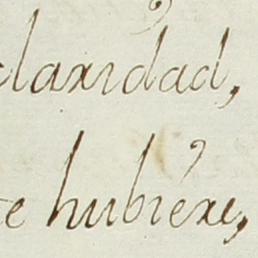 claridad,
te hubiére,